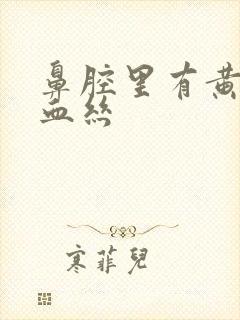 鼻腔里有黄
血丝
寒菲兒